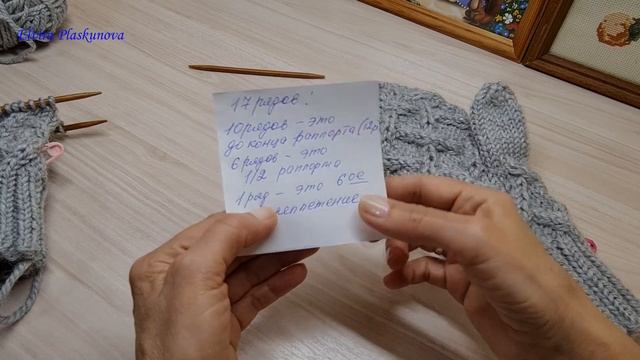 Elvira Plaskunova
17 рядов:
10 рядов - это
до конца раппорта (12р
6 рядов - это
1/2 раппорта
1 ряд - это 6ое
реплетение